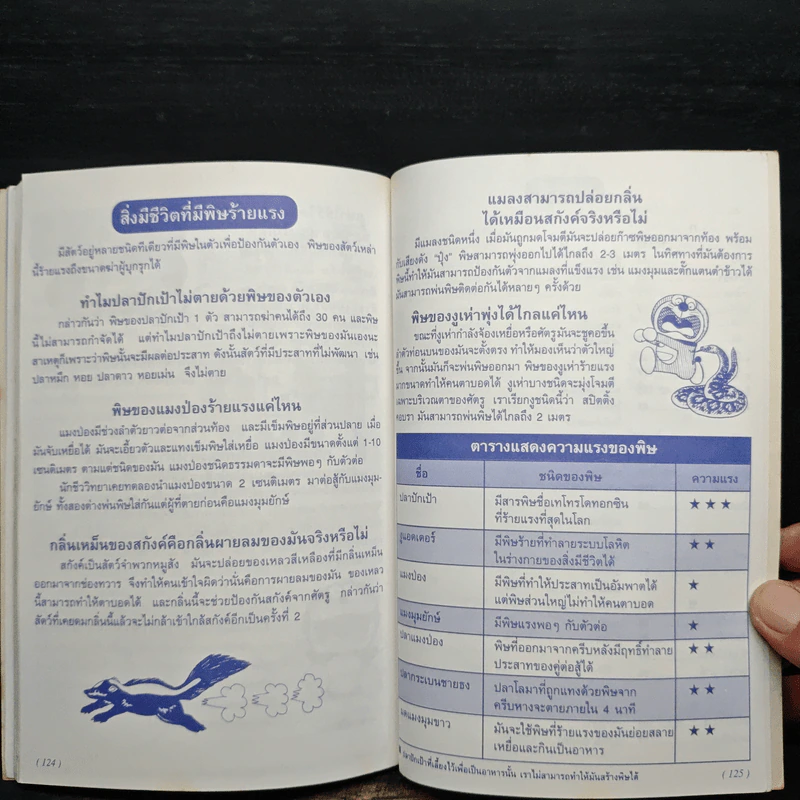 สิ่งมีชีวิตที่มีพิษร้ายแรง
มีสัตว์อยู่หลายชนิดทีเดียวที่มีพิษในตัวเพื่อป้องกันตัวเอง พิษของสัตว์เหล่า
นี้ร้ายแรงถึงขนาดฆ่าผู้บุกรุกได้
ทำไมปลาปักเป้าไม่ตายด้วยพิษของตัวเอง
กล่าวกันว่า พิษของปลาปักเป้า 1 ตัว สามารถฆ่าคนได้ถึง 30 คน และพิษ
นี้ไม่สามารถกำจัดได้ แต่ทำไมปลาปักเป้าถึงไม่ตายเพราะพิษของมันเองนะ
สาเหตุก็เพราะว่าพิษนั้นจะมีผลต่อประสาท ดังนั้นสัตว์ที่มีประสาทที่ไม่พัฒนา เช่น
ปลาหมึก หอย ปลาดาว หอยเม่น จึงไม่ตาย
พิษของแมงป่องร้ายแรงแค่ไหน
แมงป่องมีช่วงลำตัวยาวต่อจากส่วนท้อง และมีเข็มพิษอยู่ที่ส่วนปลาย เมื่อ
มันจับเหยื่อได้ มันจะเอี้ยวตัวและแทงเข็มพิษใส่เหยื่อ แมงป่องมีขนาดตั้งแต่ 1-10
เซนติเมตร ตามแต่ชนิดของมัน แมงป่องชนิดธรรมดาจะมีพิษพอๆ กับตัวต่อ
นักชีววิทยาเคยทดลองนำแมงป่องขนาด 2 เซนติเมตร มาต่อสู้กับแมงมุม-
ยักษ์ ทั้งสองต่างพ่นพิษใส่กันแต่ผู้ที่ตายก่อนคือแมงมุมยักษ์
กลิ่นเหม็นของสกังค์คือกลิ่นผายลมของมันจริงหรือไม่
สกังค์เป็นสัตว์จำพวกหมูสัง มันจะปล่อยของเหลวสีเหลืองที่มีกลิ่นเหม็น
ออกมาจากช่องทวาร จึงทำให้คนเข้าใจผิดว่านั่นคือการผายลมของมัน ของเหลว
นี้สามารถทำให้ตาบอดได้ และกลิ่นนี้จะช่วยป้องกันสกังค์จากศัตรู กล่าวกันว่า
สัตว์ที่เคยดมกลิ่นนี้แล้วจะไม่กล้าเข้าใกล้สกังค์อีกเป็นครั้งที่ 2
(124)
แมลงสามารถปล่อยกลิ่น
ได้เหมือนสกังค์จริงหรือไม่
มีแมลงชนิดหนึ่ง เมื่อมันถูกมดโจมตีมันจะปล่อยก๊าซพิษออกมาจากท้อง พร้อม
กับเสียงดัง "ปุ้ง" พิษสามารถพุ่งออกไปได้ไกลถึง 2-3 เมตร ในทิศทางที่มันต้องการ
พิษนี้ทำให้มันสามารถป้องกันตัวจากแมลงที่แข็งแรง เช่น แมงมุมและตั๊กแตนตำข้าวได้
มันสามารถพ่นพิษติดต่อกันได้หลายๆ ครั้งด้วย
พิษของงูเห่าพุ่งได้ไกลแค่ไหน
ขณะที่งูเห่ากำลังจ้องเหยื่อหรือศัตรูมันจะชูคอขึ้น
ลำตัวท่อนบนของมันจะตั้งตรง ทำให้มองเห็นว่าตัวใหญ่
ขึ้น จากนั้นมันก็จะพ่นพิษออกมา พิษของงูเห่าร้ายแรง
มากขนาดทำให้คนตาบอดได้ งูเห่าบางชนิดจะมุ่งโจมตี
เฉพาะบริเวณตาของศัตรู เราเรียกงูชนิดนี้ว่า สปิตติ้ง
คอบรา มันสามารถพ่นพิษได้ไกลถึง 2 เมตร
ตารางแสดงความแรงของพิษ
ชื่อ ชนิดของพิษ ความแรง
ปลาปักเป้า มีสารพิษชื่อเทโทรโดทอกซิน ★★★
ที่ร้ายแรงที่สุดในโลก
งูแอดเดอร์ มีพิษร้ายที่ทำลายระบบโลหิต ★★
ในร่างกายของสิ่งมีชีวิตได้
แมงป่อง มีพิษที่ทำให้ประสาทเป็นอัมพาตได้ ★
แต่พิษส่วนใหญ่ไม่ทำให้คนตาบอด
แมงมุมยักษ์ มีพิษแรงพอๆ กับตัวต่อ ★
ปลาแมงป่อง พิษที่ออกมาจากครีบหลังมีฤทธิ์ทำลาย ★★
ประสาทของคู่ต่อสู้ได้
ปลากระเบนชายธง ปลาโลมาที่ถูกแทงด้วยพิษจาก ★★
ครีบหางจะตายภายใน 4 นาที
มดแมงมุมขาว มันจะใช้พิษที่ร้ายแรงของมันย่อยสลาย ★★
เหยื่อและกินเป็นอาหาร
ปลาปักเป้าที่เลี้ยงไว้เพื่อเป็นอาหารนั้น เราไม่สามารถทำให้มันสร้างพิษได้
(125)